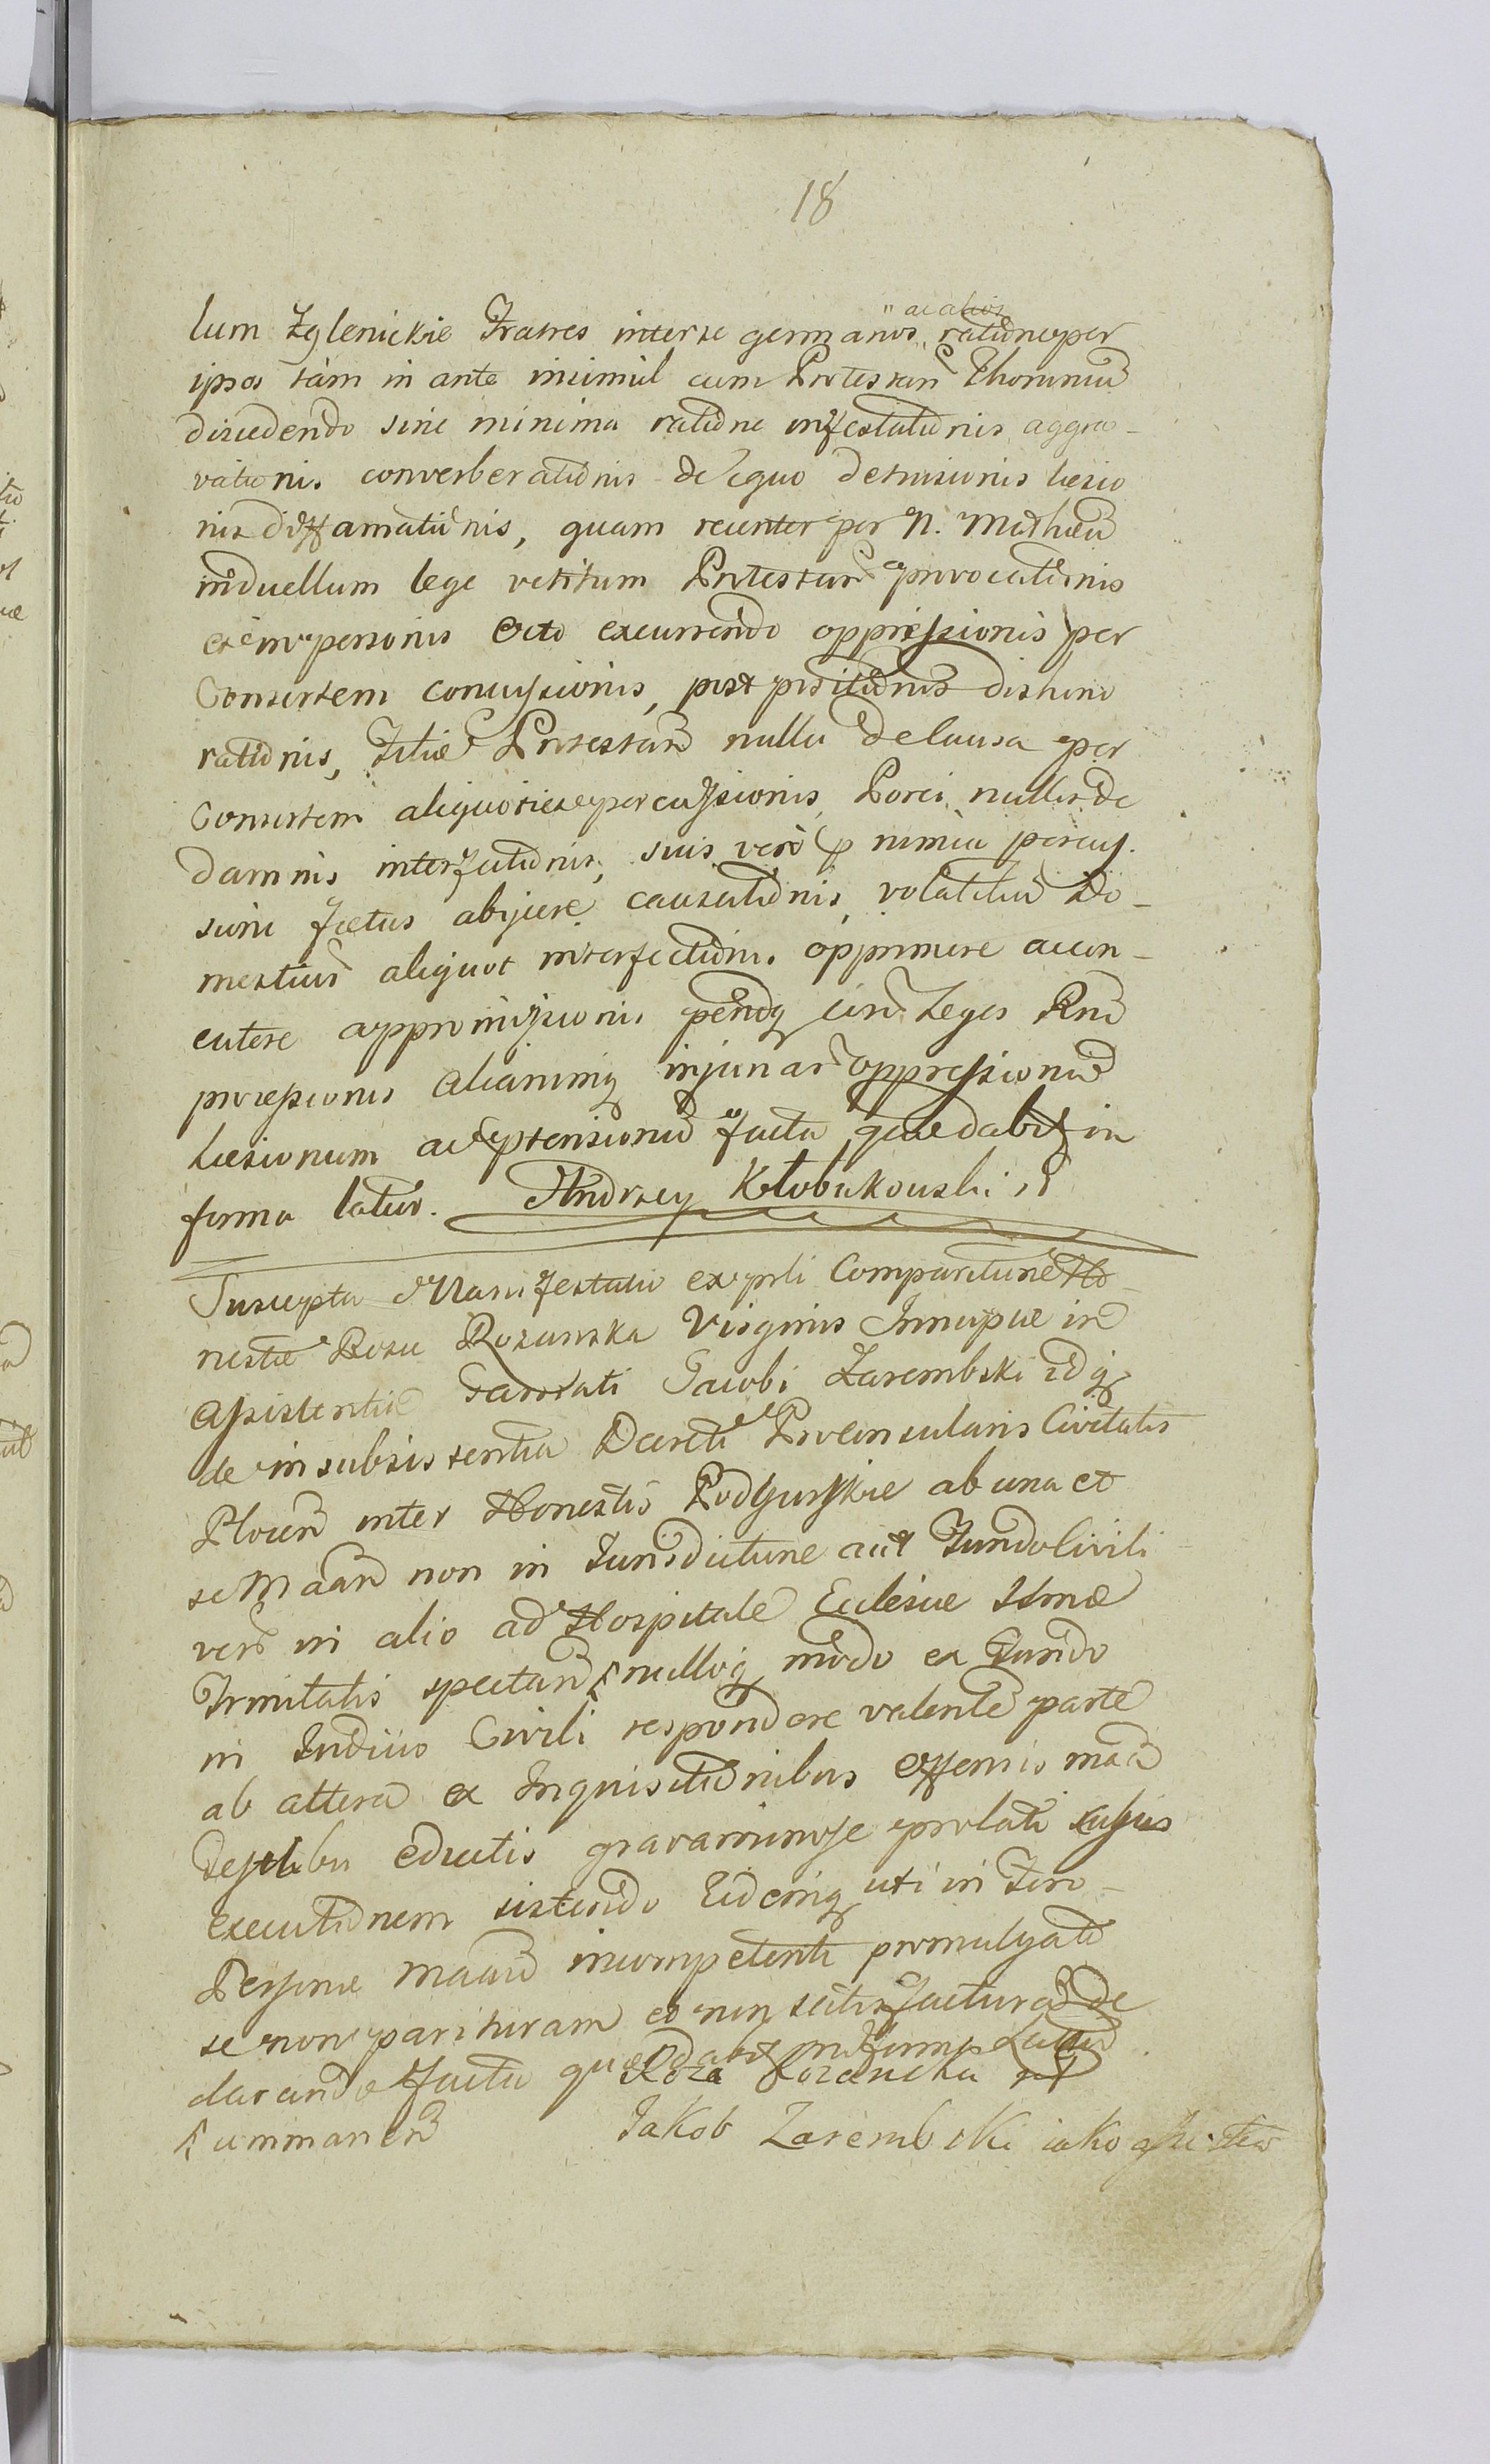 18
ac alios
lum Zglenickie Fratres inter se germanos ratione per
ipsos tam in ante insimul cum Protestan Thorunium
discedendo sine minima ratione infestationis aggra-
vationis converberationis de equo detrusionis læsio
nis diffamationis, quam recenter per N. Mathæum
in duellum lege vetitum Protestan provocationis
et in personis octo excurrendo oppressionis per
Consortem concussionis, post positionis dishono
rationis, Filiæ Protestan nulla de causa per
Consortem aliquoties percussionis, Porci nullis de
damnis interfectionis, suis vero nimia percus.
sione fœtus abjicere causationis, volatilium Do-
mesticum aliquot interfectionis opprimere ac con-
cutere appromissionis penasq circa Leges Rni
processionis aliarumq injuriar oppressionum
Læsionum ac prætensionum facta quæ dabit in
forma latius. Andrzey Kłobukowski
Suscepta Manifestatio ex psli Comparitione Ho-
nestæ Rosæ Rozanska Virginis Innuptæ in
assistentia Famati Jacobi Zarembski idq
de in subsistentia Decreti Proconsularis Civitatis
Plocen inter Honestos Podgurskie ab una et
se Maan non in Jurisdictione aut Fundo Civili
vero in alio ad Hospitale Ecclesiæ Ssmæ
Trinitatis spectan nulloq modo ex Fundo
in Judicio Civili respondere valente parte
ab altera ex Inquisitionibus
Testibus eductis gravaminose prolati cujus
executionem sistendo Eidemq uti in Foro
Personæ Maan incompetenti promulgato
se non parituram et non satisfacturam de
claran facta quæ dabit in forma Latius
Roza Rozanska
summanen Jakob Zarembski iako assistens